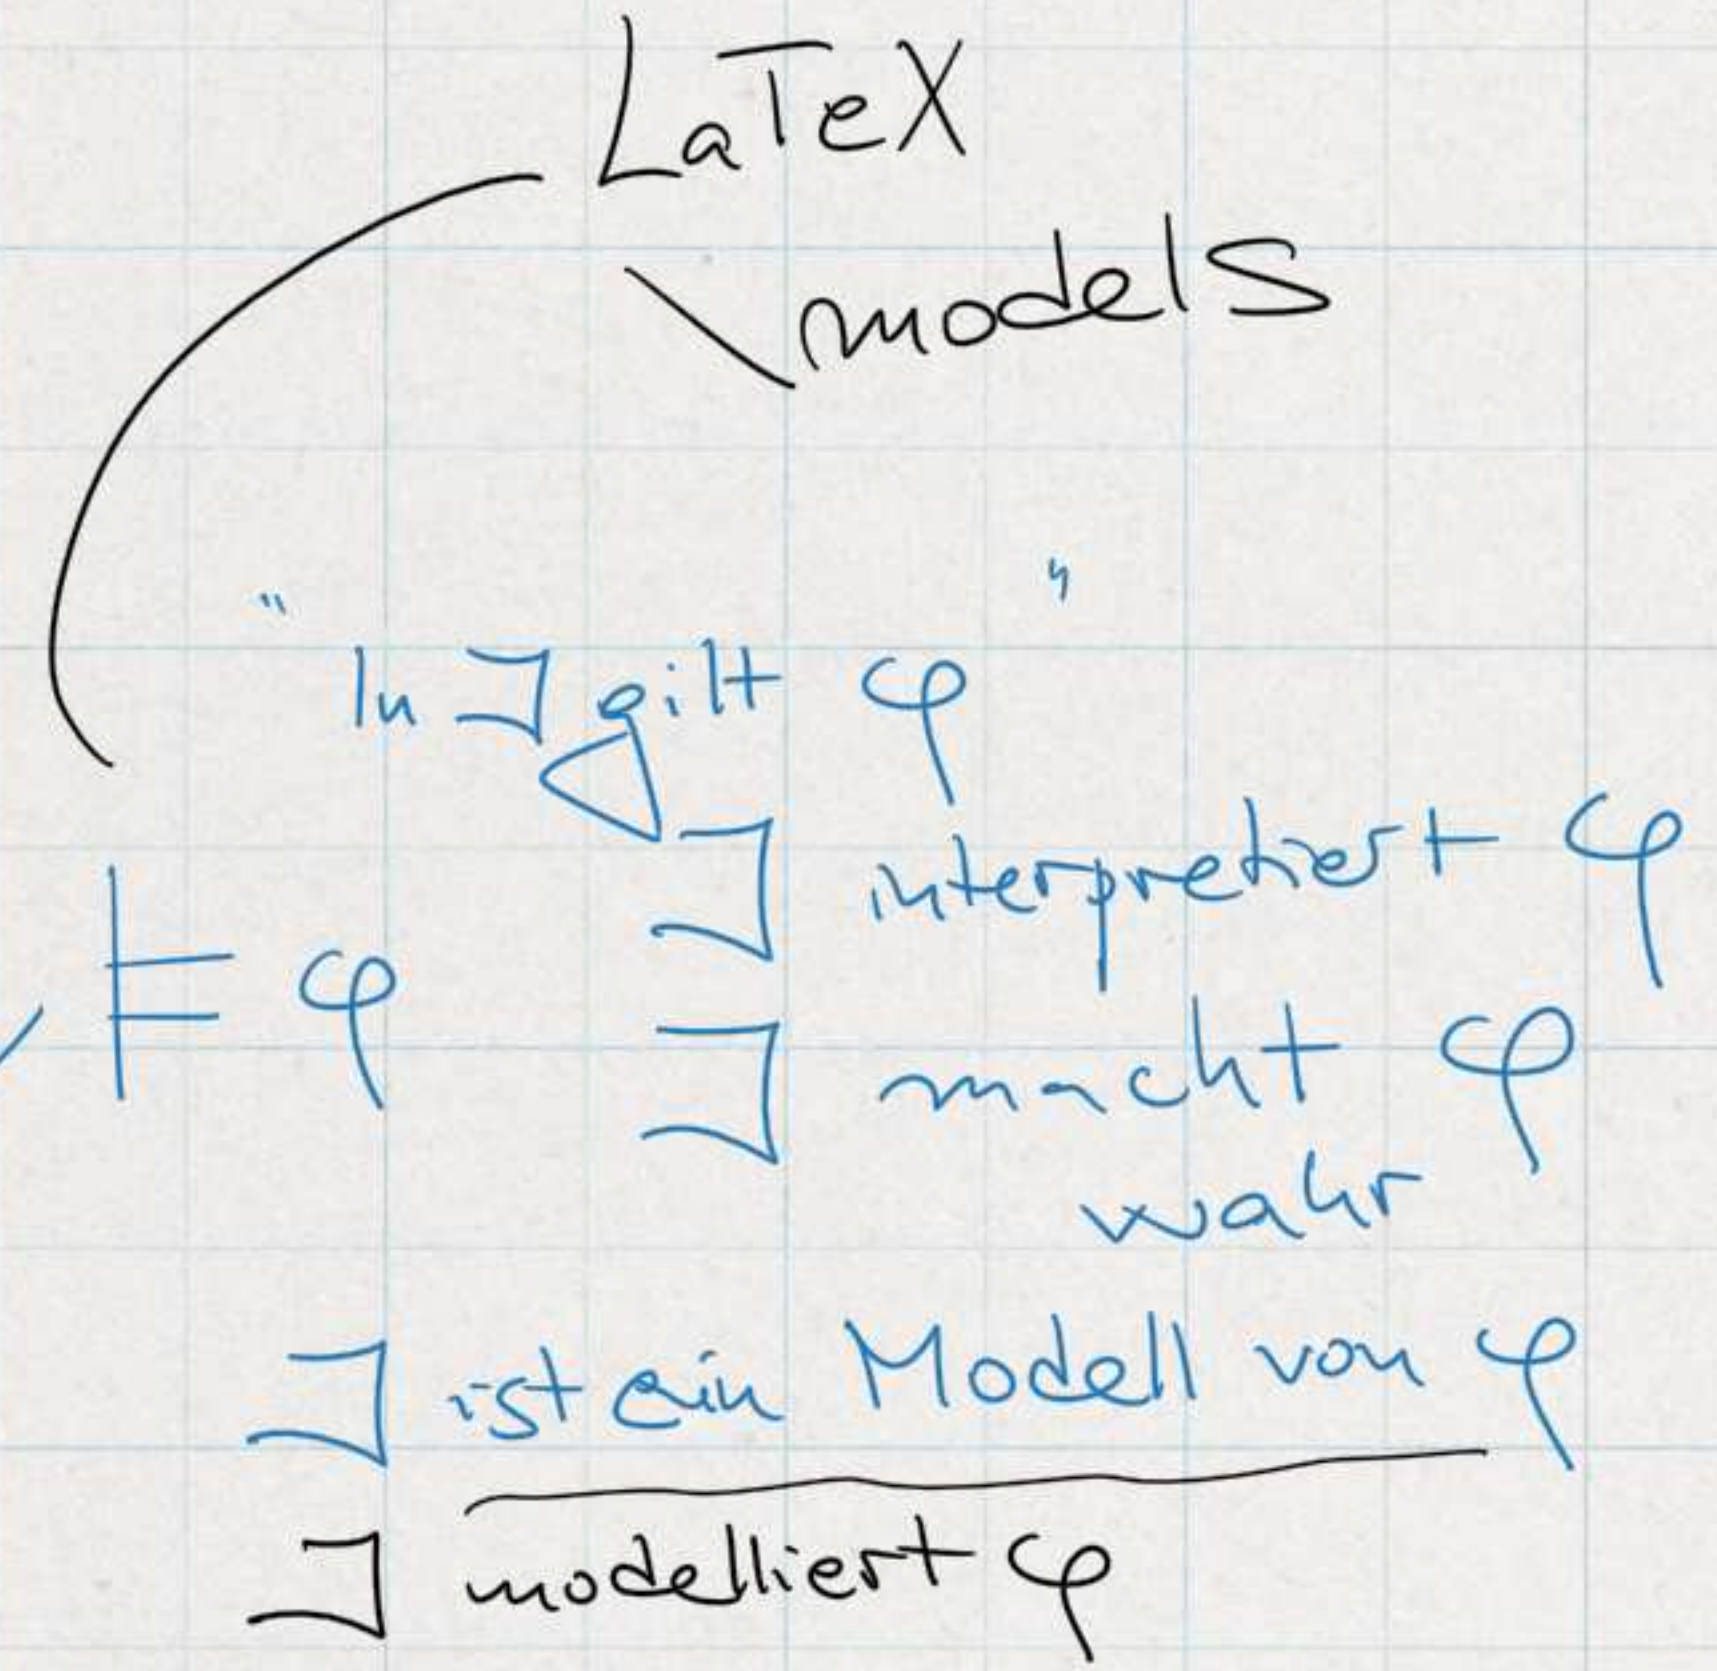 LaTeX
\models
"In ℑ gilt φ"
ℑ interpretiert φ
⊨ φ
ℑ macht φ
wahr
ℑ ist ein Modell von φ
ℑ modelliert φ